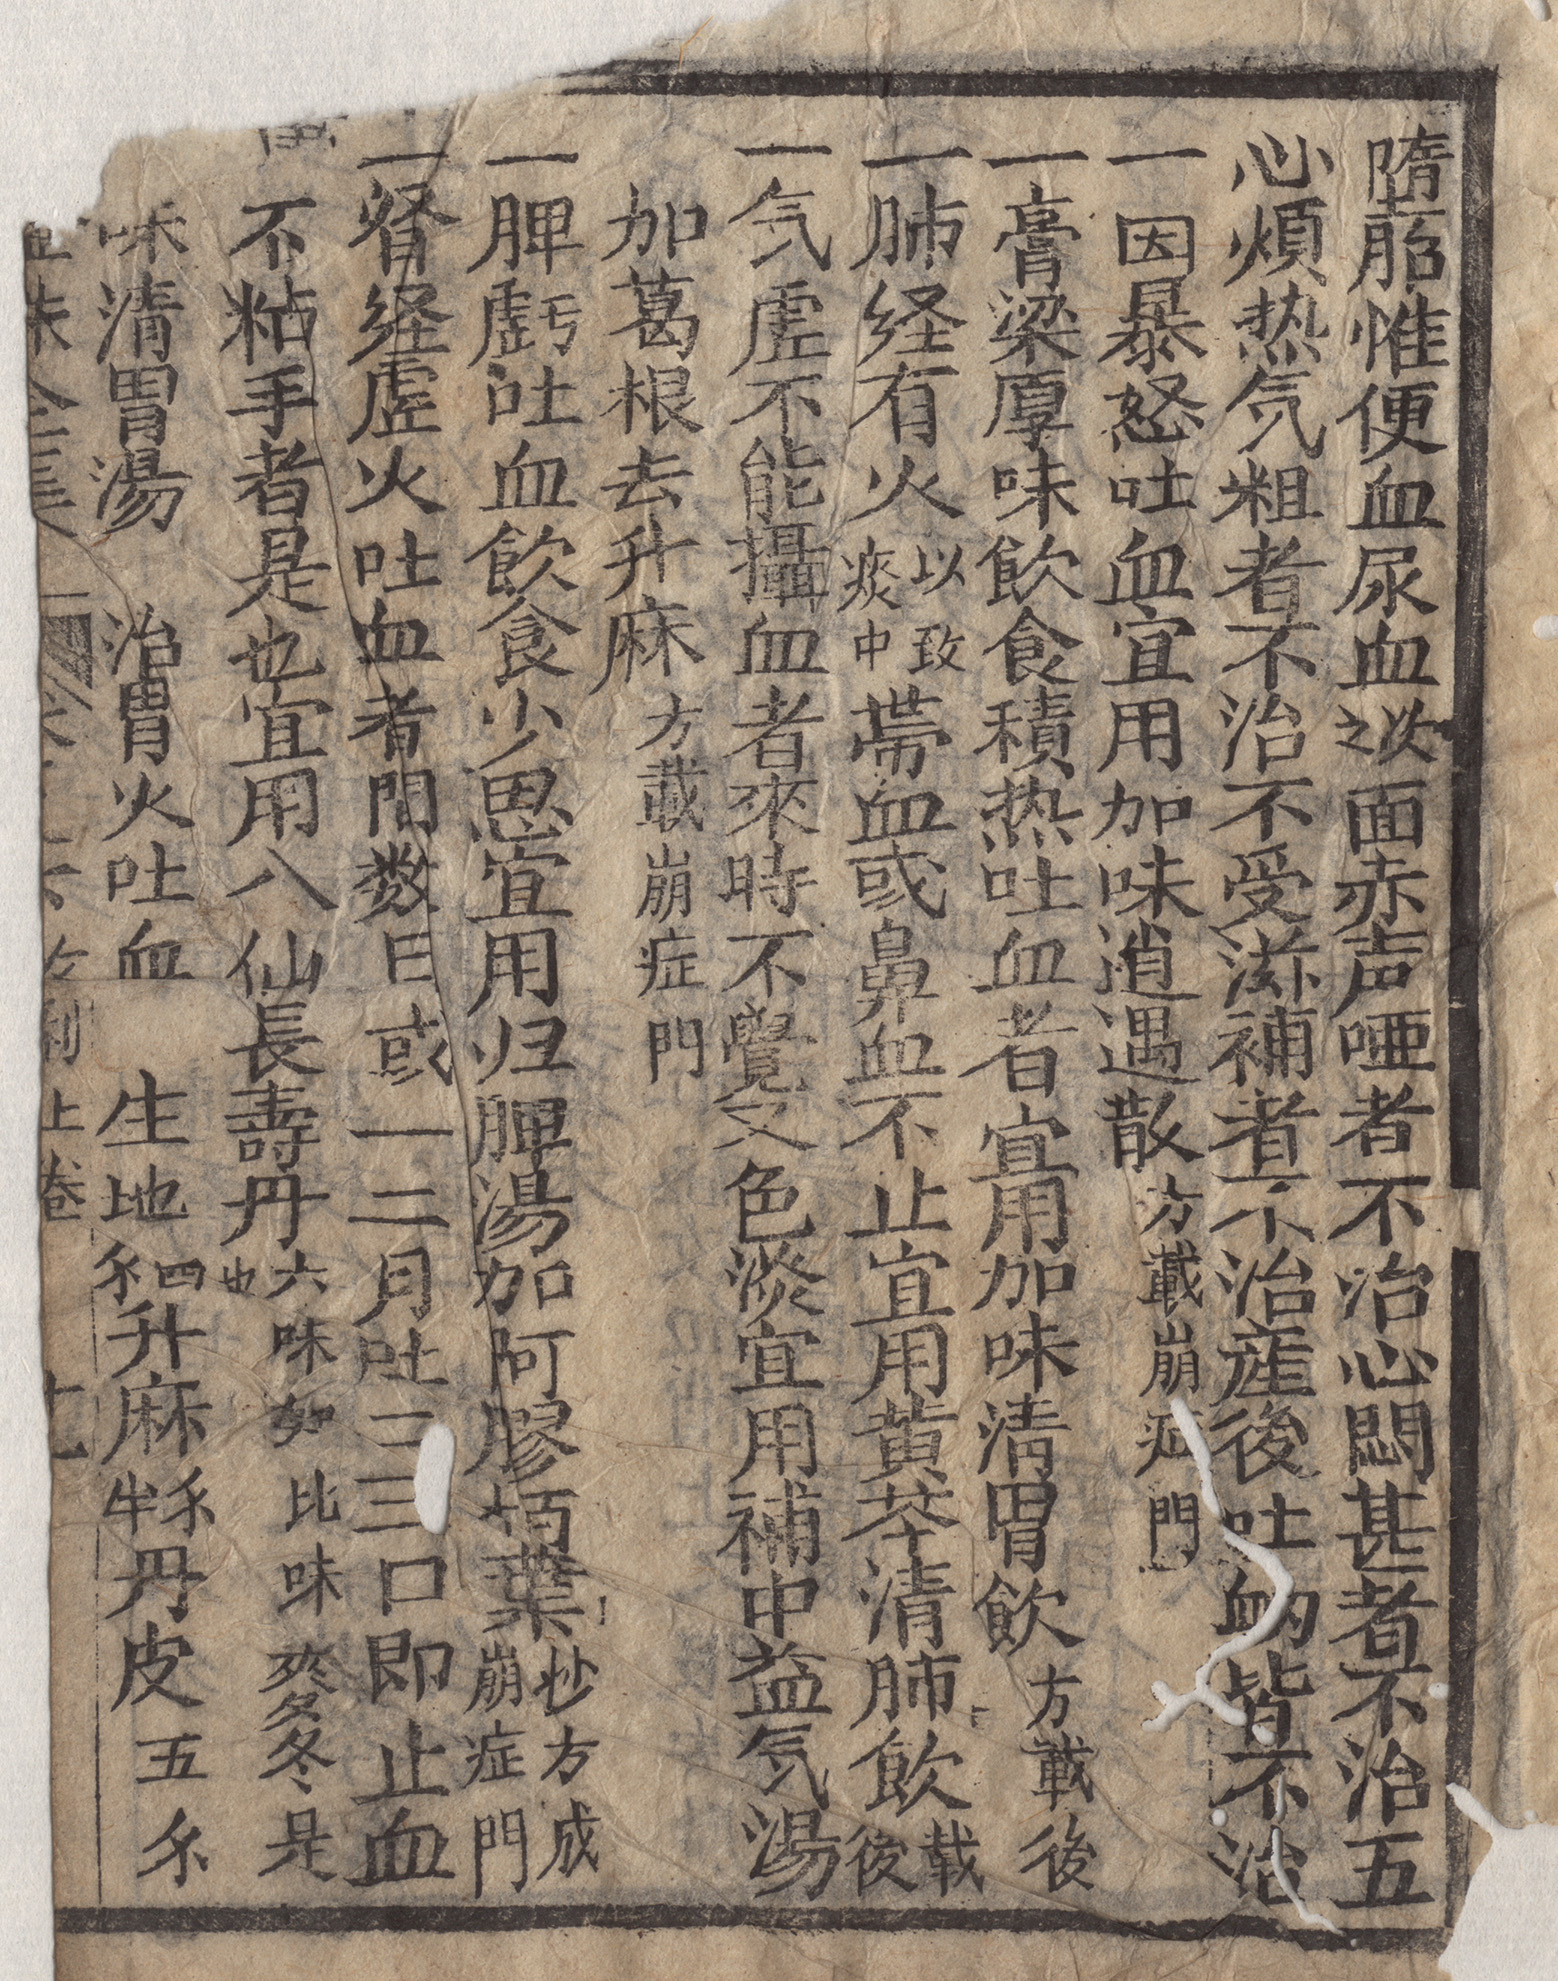 隨胎惟便血尿血次之面赤声啞者不治心悶甚者不治五
心煩热気粗者不治不受滋補者不治産後吐衂皆不治
一因暴怒吐血宜用加味逍遥散方載崩症門
一膏梁厚味飲食積热吐血者宜用加味清胃飲方載後
一肺経有火以致痰中帶血或鼻血不止宜用黄芩清肺飲載後
一気虗不能攝血者來時不覺又色淡宜用補中益気湯
加葛根去升麻方載崩症門
一脾虧吐血飲食少思宜用归脾湯加阿膠栢葉炒方成崩症門
一腎経虗火吐血者間数日或一二月吐二三口即止血
不粘手者是也宜用八仙長壽丹六味如比味麥冬是也
味清胃湯 治胃火吐血 生地四分升麻分半丹皮五分
上卷